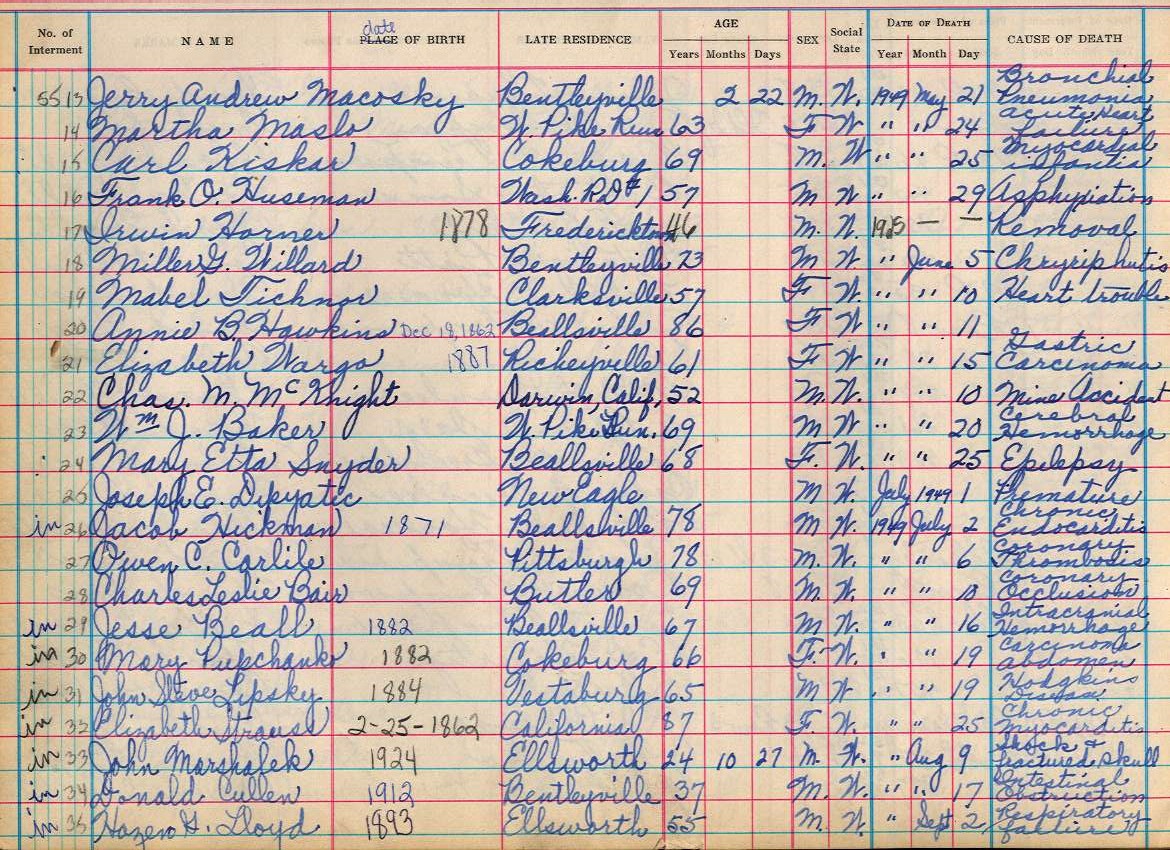 No. of Interment NAME date PLACE OF BIRTH LATE RESIDENCE AGE Years Months Days SEX Social State DATE OF DEATH Year Month Day CAUSE OF DEATH
5513 Jerry Andrew Macosky Bentleyville 2 22 M. W. 1949 May 21 Bronchial Pneumonia
14 Martha Maslo W. Pike Run 63 F W " " 24 acute Heart failure
15 Carl Kiskar Cokeburg 69 M. W " " 25 Myocardial
16 Frank O. Huseman Wash. R.D #1 57 M W " " 29 Asphyxiation
17 Irwin Horner 1878 Fredericktown 46 M. W. 1925 — — Removal
18 Miller G. Willard Bentleyville 73 M W " June 5
19 Mabel Tichnor Clarksville 57 F W. " " 10 Heart trouble
20 Annie B. Hawkins Dec 18, 1862 Beallsville 86 F W " " 11
21 Elizabeth Wargo 1887 Richeyville 61 F W " " 15 Gastric Carcinoma
22 Chas. M. McKnight Darwin, Calif. 52 M. W. " " 10 Mine Accident
23 Wm J. Baker W. Pike Run. 69 M W " " 20 Cerebral Hemorrhage
24 Mary Etta Snyder Beallsville 68 F. W. " " 25 Epilepsy
25 Joseph E. Dipyatic New Eagle M W. July 1949 1 Premature
in 26 Jacob Hickman 1871 Beallsville 78 M W. 1949 July 2 Chronic Endocarditis
27 Owen C. Carlile Pittsburgh 78 M. W. " " 6 Coronary Thrombosis
28 Charles Leslie Bair Butler 69 M. W. " " 10 Coronary Occlusion
in 29 Jesse Beall 1882 Beallsville 67 M W. " " 16 Intracranial Hemorrhage
in 30 Mary Pupchanko 1882 Cokeburg 66 F. W. " " 19 Carcinoma Abdomen
in 31 John Steve Lipsky 1884 Vestaburg 65 M W. " " 19 Hodgkins Disease
in 32 Elizabeth Strauss 2-25-1862 California 87 F. W. " " 25 Chronic Myocarditis
in 33 John Marshalek 1924 Ellsworth 24 10 27 M. W. " Aug 9 Shock & fractured skull
in 34 Donald Cullen 1912 Bentleyville 37 M. W. " " 17 Intestinal Obstruction
in 35 Hazen G. Lloyd 1893 Ellsworth 55 M. W. " Sept 2 Respiratory failure